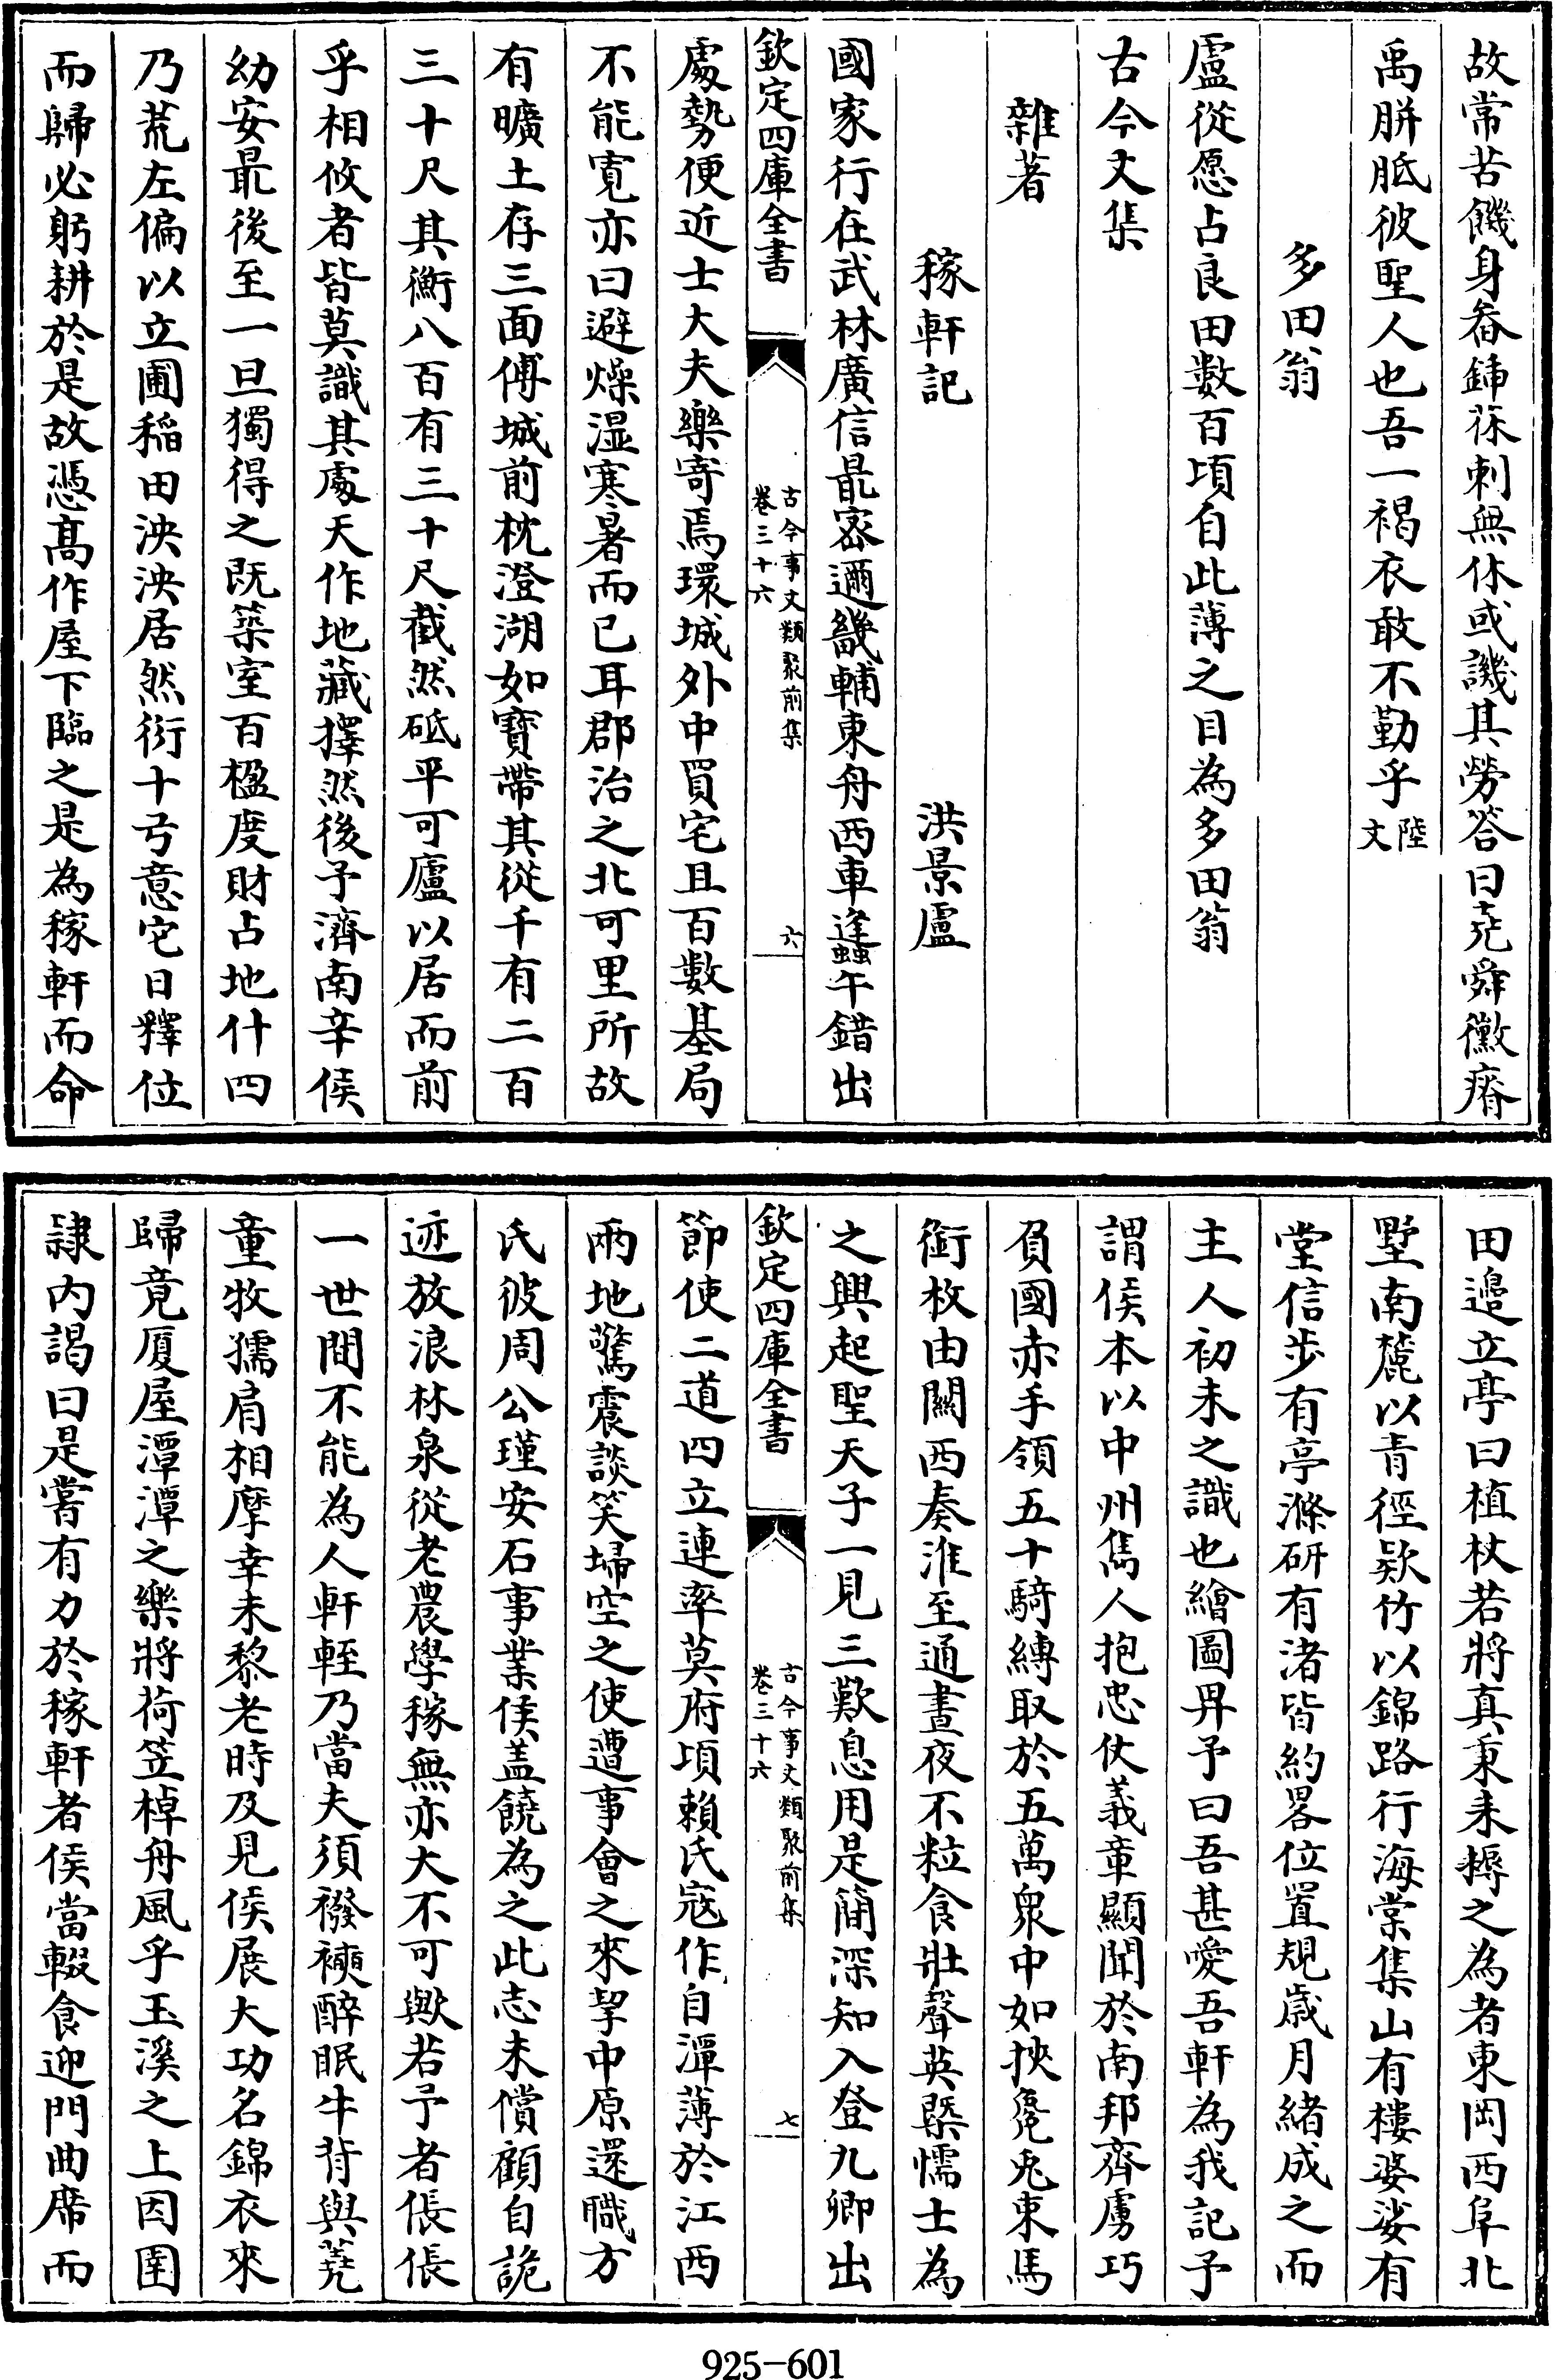 故常苦饑身畚鍤茠刺無休或譏其勞答曰堯舜黴瘠
禹胼胝彼聖人也吾一褐衣敢不勤乎陸文
多田翁
盧從愿占良田數百頃自此薄之目為多田翁
古今文集
雜著
稼軒記　洪景盧
國家行在武林廣信最密邇畿輔東舟西車蠭午錯出
欽定四庫全書
古今事文類聚前集
卷三十六
六
處勢便近士大夫樂寄焉環城外中買宅且百數基局
不能寬亦曰避燥濕寒暑而已耳郡治之北可里所故
有曠土存三面傅城前枕澄湖如寶帶其從千有二百
三十尺其衡八百有三十尺截然砥平可廬以居而前
乎相攸者皆莫識其處天作地藏擇然後予濟南辛侯
幼安最後至一旦獨得之既築室百楹度財占地什四
乃荒左偏以立圃稻田泱泱居然衍十弓意它日釋位
而歸必躬耕於是故憑高作屋下臨之是為稼軒而命
田邉立亭曰植杖若將真秉耒耨之為者東岡西阜北
墅南麓以青徑欵竹以錦路行海棠集山有樓婆娑有
堂信步有亭滌研有渚皆約畧位置規歲月緒成之而
主人初未之識也繪圖畀予曰吾甚愛吾軒為我記予
謂侯本以中州雋人抱忠仗義章顯聞於南邦齊虜巧
負國赤手領五十騎縛取於五萬衆中如挾毚兎束馬
銜枚由關西奏淮至通晝夜不粒食壯聲英槩懦士為
之興起聖天子一見三歎息用是簡深知入登九卿出
欽定四庫全書
古今事文類聚前集
卷三十六
七
節使二道四立連率莫府頃賴氏寇作自潭薄於江西
兩地驚震談笑埽空之使遭事會之來挈中原還職方
氏彼周公瑾安石事業侯盖饒為之此志未償顧自詭
迹放浪林泉從老農學稼無亦大不可歟若予者倀倀
一世間不能為人軒輊乃當夫須襏襫醉眠牛背與蕘
童牧孺肩相摩幸未黎老時及見侯展大功名錦衣來
歸竟厦屋潭潭之樂將荷笠棹舟風乎玉溪之上因圉
隸内謁曰是嘗有力於稼軒者侯當輟食迎門曲席而
925-601